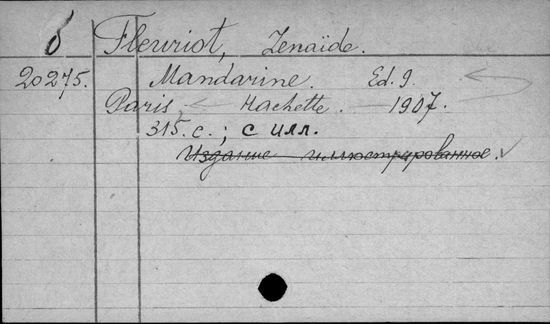 б Fleuriot, Zenaïde.
20275. Mandarine. Ed. 9.
Paris — Hachette. — 1907.
315. с.; с илл.
Издание иллюстрированное.